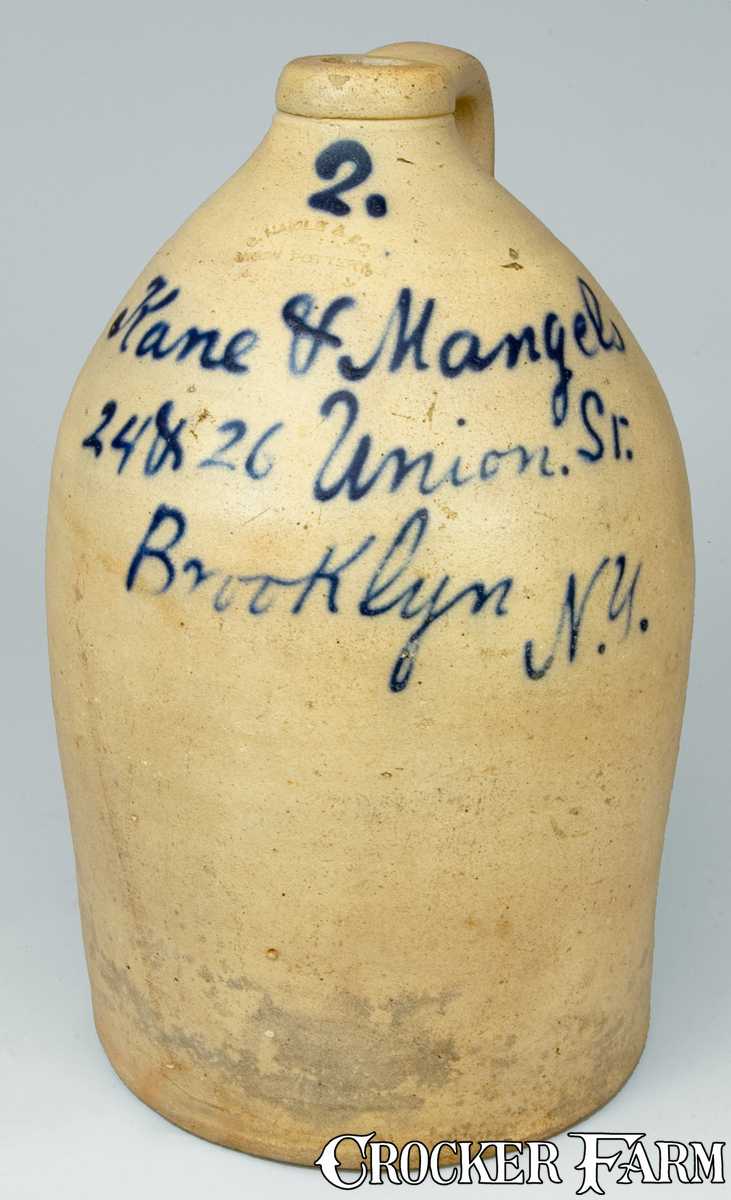 2.
Kane & Mangels
24 & 26 Union. St.
Brooklyn N.Y.
CROCKER FARM